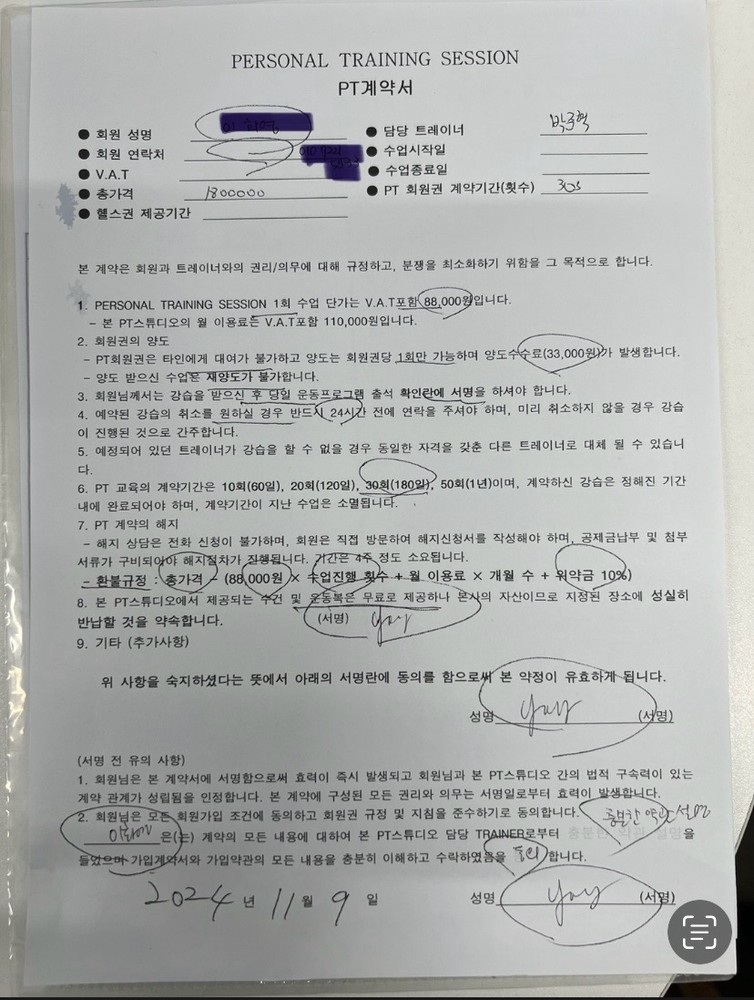 PERSONAL TRAINING SESSION
PT계약서
● 회원 성명
● 담당 트레이너 박준혁
● 회원 연락처
● 수업시작일
● V.A.T
● 수업종료일
● 총가격 1800000
● PT 회원권 계약기간(횟수) 30s
● 헬스권 제공기간
본 계약은 회원과 트레이너와의 권리/의무에 대해 규정하고, 분쟁을 최소화하기 위함을 그 목적으로 합니다.
1. PERSONAL TRAINING SESSION 1회 수업 단가는 V.A.T포함 88,000원입니다.
- 본 PT스튜디오의 월 이용료는 V.A.T포함 110,000원입니다.
2. 회원권의 양도
- PT회원권은 타인에게 대여가 불가하고 양도는 회원권당 1회만 가능하며 양도수수료(33,000원)가 발생합니다.
- 양도 받으신 수업은 재양도가 불가합니다.
3. 회원님께서는 강습을 받으신 후 당일 운동프로그램 출석 확인란에 서명을 하셔야 합니다.
4. 예약된 강습의 취소를 원하실 경우 반드시 24시간 전에 연락을 주셔야 하며, 미리 취소하지 않을 경우 강습
이 진행된 것으로 간주합니다.
5. 예정되어 있던 트레이너가 강습을 할 수 없을 경우 동일한 자격을 갖춘 다른 트레이너로 대체 될 수 있습니
다.
6. PT 교육의 계약기간은 10회(60일), 20회(120일), 30회(180일), 50회(1년)이며, 계약하신 강습은 정해진 기간
내에 완료되어야 하며, 계약기간이 지난 수업은 소멸됩니다.
7. PT 계약의 해지
- 해지 상담은 전화 신청이 불가하며, 회원은 직접 방문하여 해지신청서를 작성해야 하며, 공제금납부 및 첨부
서류가 구비되어야 해지절차가 진행됩니다. 기간은 4주 정도 소요됩니다.
- 환불규정 : 총가격 - (88,000원 × 수업진행 횟수 + 월 이용료 × 개월 수 + 위약금 10%)
8. 본 PT스튜디오에서 제공되는 수건 및 운동복은 무료로 제공하나 본사의 자산이므로 지정된 장소에 성실히
반납할 것을 약속합니다. (서명)
9. 기타 (추가사항)
위 사항을 숙지하셨다는 뜻에서 아래의 서명란에 동의를 함으로써 본 약정이 유효하게 됩니다.
성명 (서명)
(서명 전 유의 사항)
1. 회원님은 본 계약서에 서명함으로써 효력이 즉시 발생되고 회원님과 본 PT스튜디오 간의 법적 구속력이 있는
계약 관계가 성립됨을 인정합니다. 본 계약에 구성된 모든 권리와 의무는 서명일로부터 효력이 발생합니다.
2. 회원님은 모든 회원가입 조건에 동의하고 회원권 규정 및 지침을 준수하기로 동의합니다.
은(는) 계약의 모든 내용에 대하여 본 PT스튜디오 담당 TRAINER로부터 충분한 약관 설명을
들었으며 가입계약서와 가입약관의 모든 내용을 충분히 이해하고 수락하였음을 동의 합니다.
2024 년 11 월 9 일
성명 (서명)